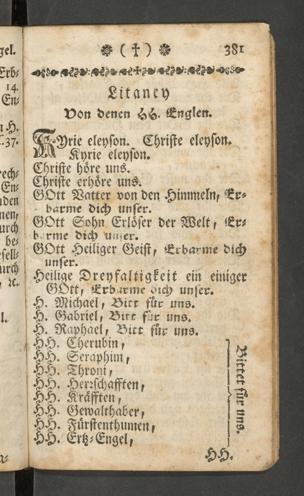 ( † ) 381
Litaney
Von denen HH. Englen.
Kyrie eleyson. Christe eleyson.
Kyrie eleyson.
Christe höre uns.
Christe erhöre uns.
GOtt Vatter von den Himmeln, Er-
barme dich unser.
GOtt Sohn Erlöser der Welt, Er-
barme dich unser.
GOtt Heiliger Geist, Erbarme dich
unser.
Heilige Dreyfaltigkeit ein einiger
GOtt, Erbarme dich unser.
H. Michael, Bitt für uns.
H. Gabriel, Bitt für uns.
H. Raphael, Bitt für uns.
HH. Cherubin,
HH. Seraphim,
HH. Throni,
HH. Herrschafften,
HH. Kräfften,
HH. Gewalthaber,
HH. Fürstenthumen,
HH. Ertz-Engel,
Bittet für uns.
HH.